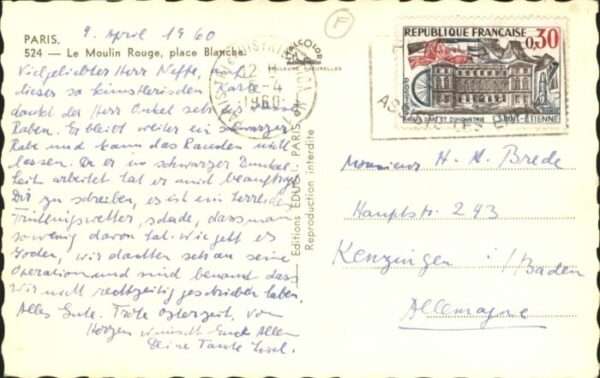 9. April 1960
PARIS.
524 — Le Moulin Rouge, place Blanche.
Vielgeliebter Herr Neffe, auf
dieser so künstlerischen Karte
dankt der Herr Onkel sehr
Raben. Er bleibt weiter ein schwarzer
Rabe und kann das Rauchen nicht
lassen. Da er in schwarzer Dunkel-
heit arbeitet hat er mich beauftragt
Dir zu schreiben, es ist ein
Frühlingswetter, schade, dass man
so wenig davon hat. Wie geht es
wir dachten schon an seine
Operation und sind
wir nicht rechtzeitig geschrieben haben.
Alles Gute. Frohe Osterzeit, von
Herzen wünscht Euch Allen
Deine Tante
Editions "GUY" - PARIS
Reproduction interdite
RÉPUBLIQUE FRANÇAISE
0,30
SAINT-ÉTIENNE
1960
Monsieur H. H. Brede
Hauptstr. 243
Kenzingen i/Baden
Allemagne